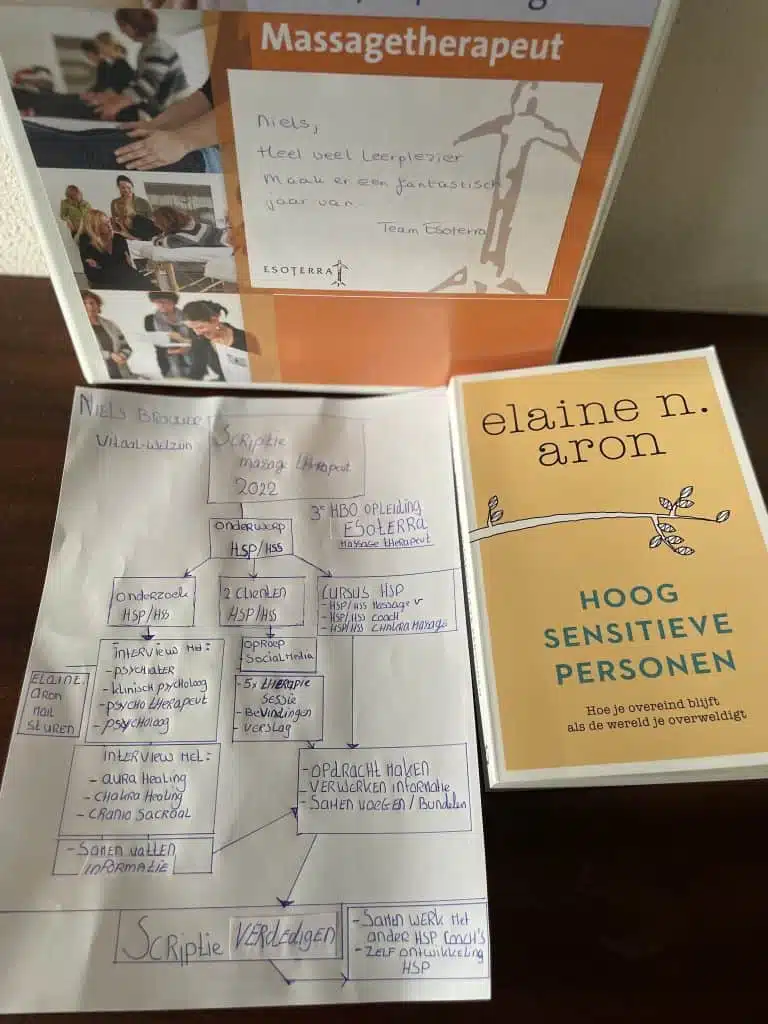 Massagetherapeut
Niels,
Heel veel Leerplezier
Maak er een fantastisch
jaar van.
Team Esoterra
ESOTERRA
NIELS BROUWER
Vitaal-Welzijn
Scriptie
massage therapeut
2022
3e HBO OPLEIDING
ESOTERRA
MASSAGE THERAPEUT
ONDERWERP
HSP/HSS
ONDERZOEK
HSP/HSS
2 CLIENTEN
HSP/HSS
CURSUS HSP
- HSP/HSS Massage
- HSP/HSS COACH
- HSP/HSS CHAKRA MASSAGE
ELAINE
ARON
MAIL
STUREN
INTERVIEW MET:
- PSYCHIATER
- klinisch psycholoog
- psycho therapeut
- psycholoog
OPROEP
- Social Media
- 5x THERAPIE
SESSIE
- BEVINDINGEN
- VERSLAG
INTERVIEW MET:
- AURA HEALING
- CHAKRA HEALING
- CRANIO SACRAAL
- SAMEN VATTEN
INFORMATIE
- OPDRACHT MAKEN
- VERWERKEN INFORMATIE
- SAMEN VOEGEN / BUNDELEN
SCRIPTIE VERDEDIGEN
- SAMEN WERK MET
ANDER HSP COACH'S
- ZELF ONTWIKKELING
HSP
elaine n.
aron
HOOG
SENSITIEVE
PERSONEN
Hoe je overeind blijft
als de wereld je overweldigt